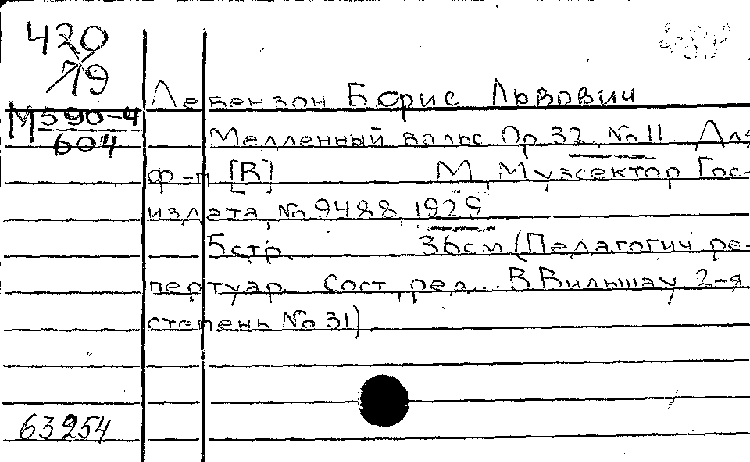 420
/79
М 590-4
604
Левензон Борис Львович
Медленный вальс Ор. 32, No 11. Для
ф-п. [B] М., Музсектор Гос-
издата, No 9488, 1929
5 стр. 36 см (Педагогич. ре-
пертуар. Сост., ред. В. Вильшау 2-я
степень No 31)
63254